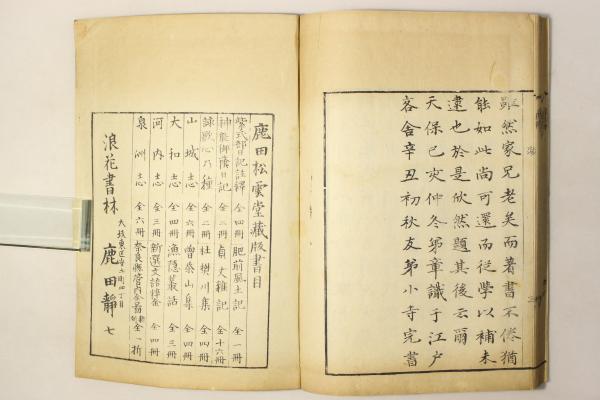 雖然家兄老矣而著書不倦猶
能如此尚可還而從學以補未
逮也於是欣然題其後云爾
天保己亥仲冬弟章識于江戶
客舍辛丑初秋友弟小寺完書
鹿田松雲堂藏版書目
紫式部日記註釋 全四冊 肥前風土記 全一冊
神能御蔭日記 全二冊 貞丈雜記 全十六冊
詠歌心乃種 全二冊 杜樊川集 全四冊
山城志 全六冊 曾茶山集 全四冊
大和志 全四冊 漁隱叢話 全三冊
河内志 全三冊 新選文語粹金 全四冊
泉洲志 全六冊 奈良縣管内全圖 全一折
大坂東區安土町四丁目
浪花書林 鹿田靜七